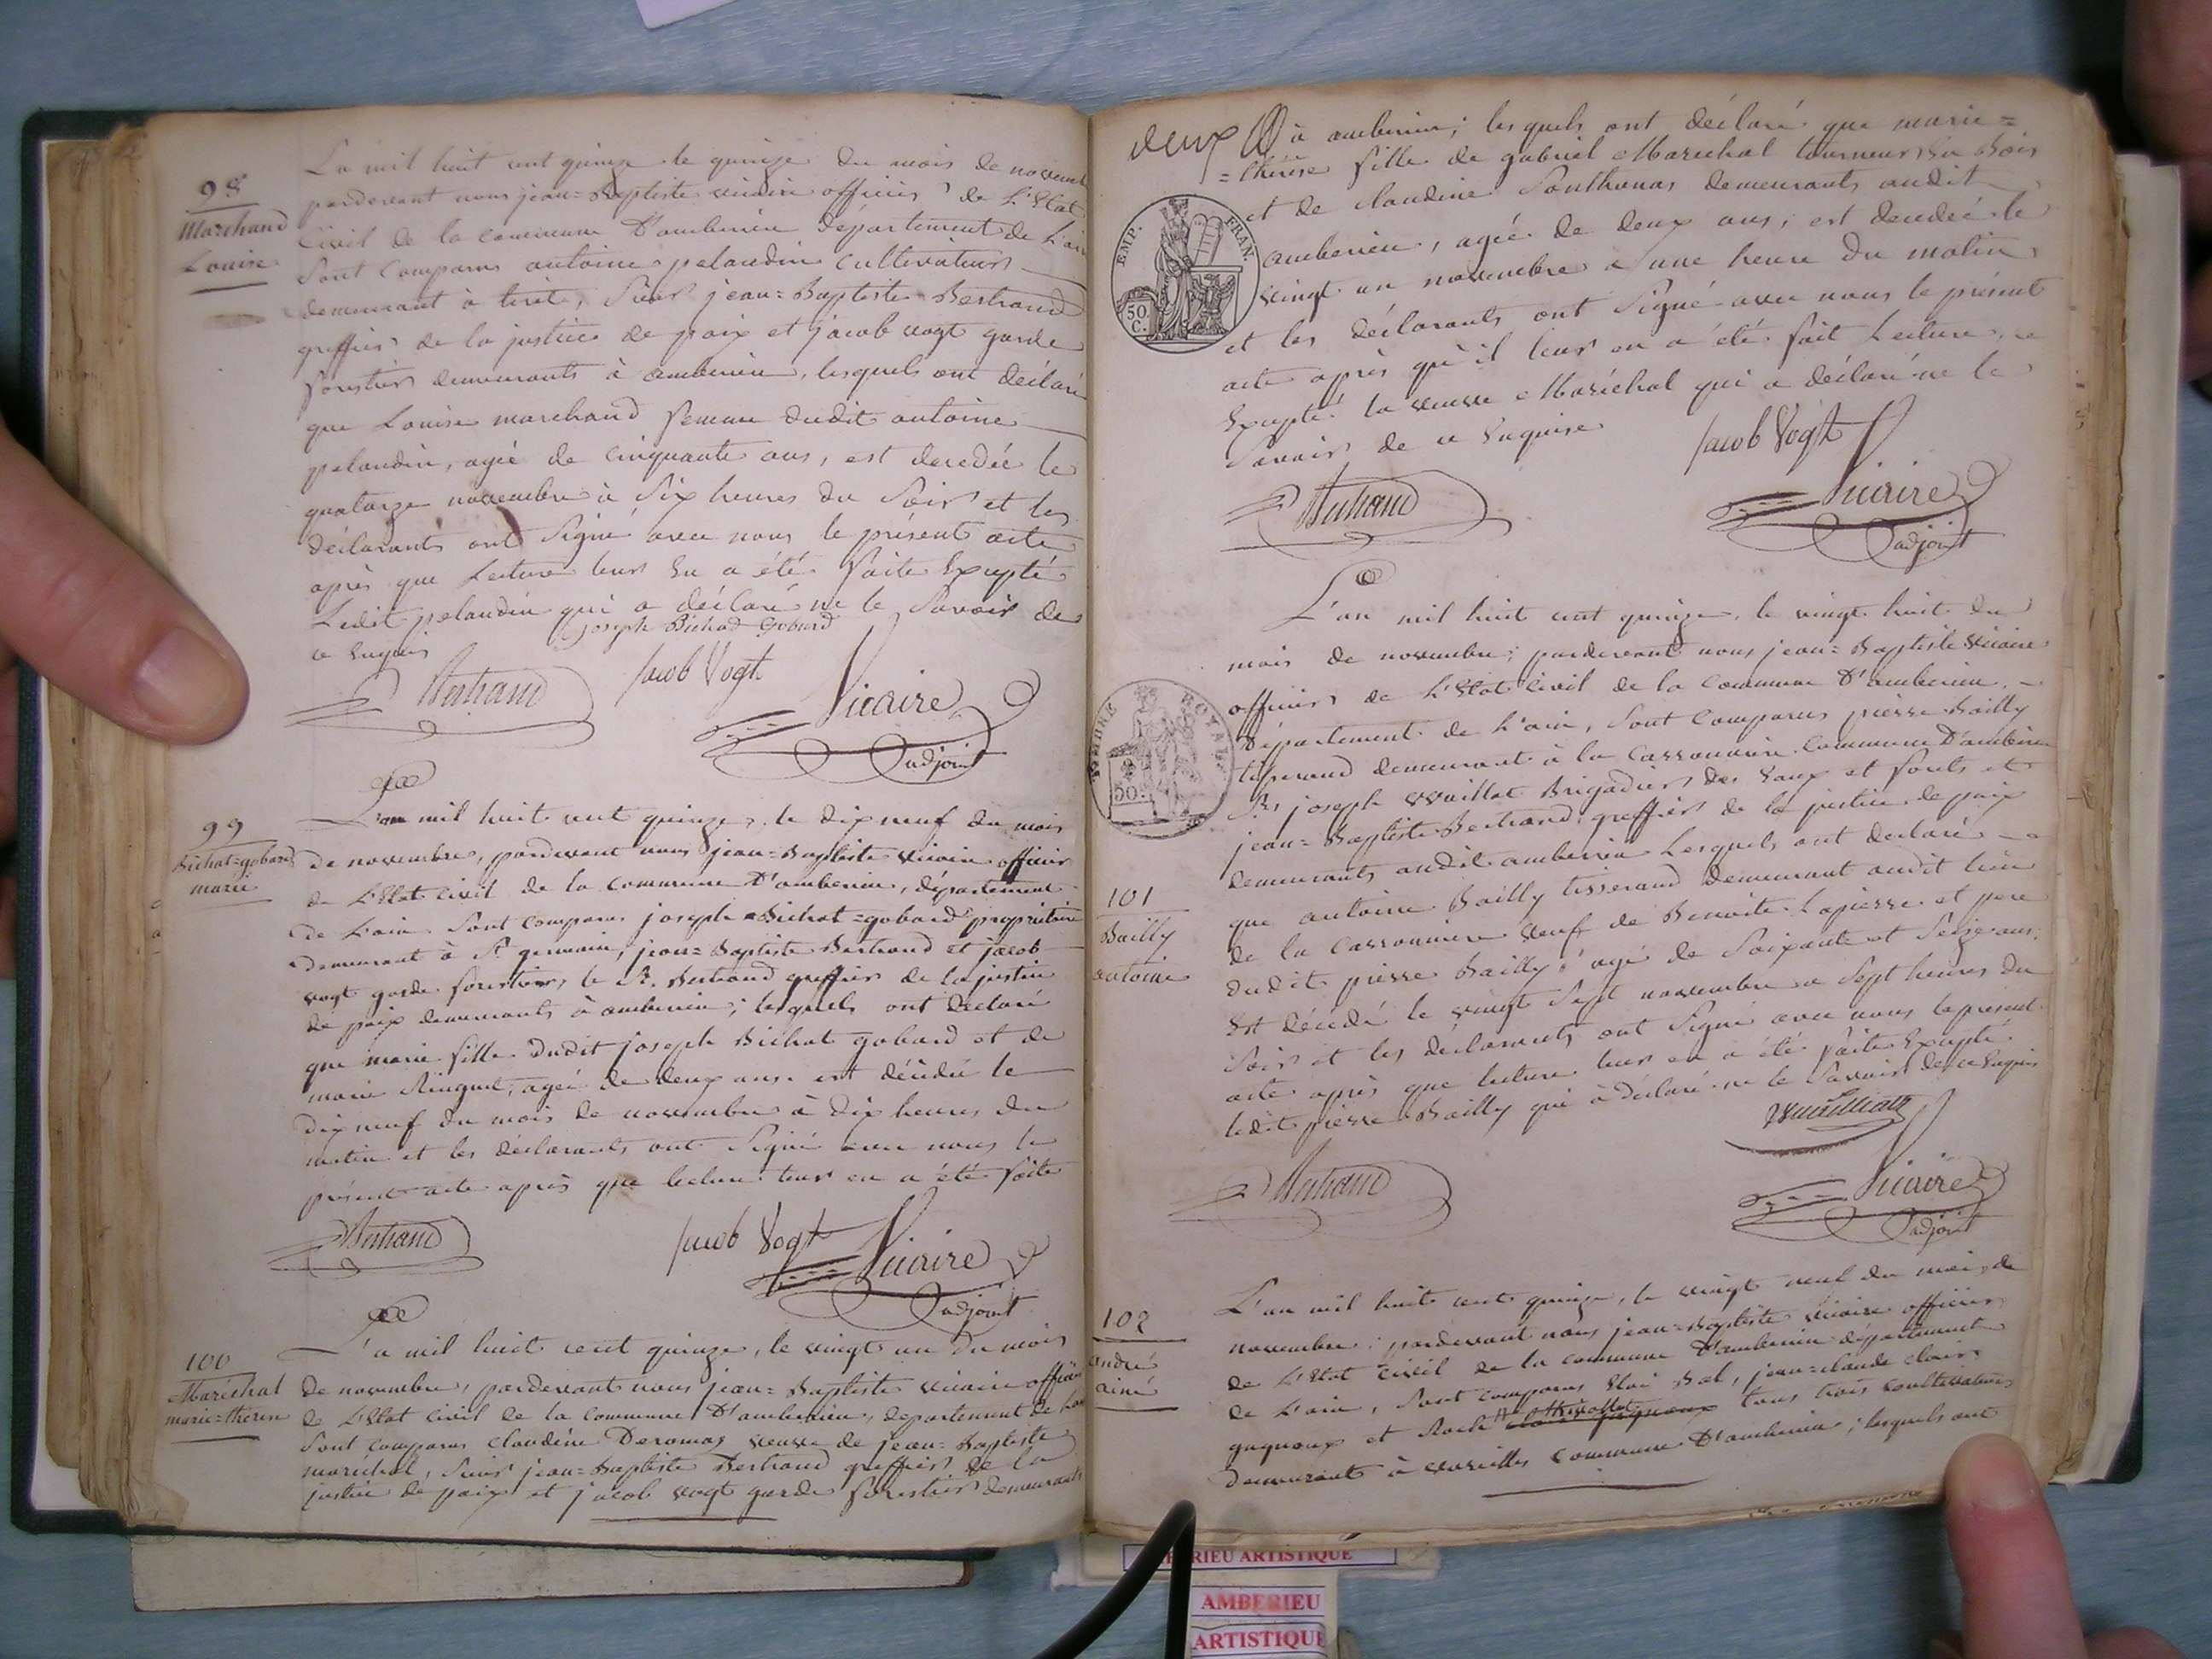 98
Marchand
Louise
L'a mil huit cent quinze le quinze du mois de novemb
pardevant nous jean=Baptiste vicaire officier de L'Etat
Civil de la commune D'amberieu département de L'ain
Sont Comparus antoine pelaudin cultivateur
demeurant à tiret, Sieur jean=Baptiste Bertrand
greffier de la justice de paix et jacob vogt garde
forestier demeurants à amberieu, lesquels ont déclaré
que Louise marchand femme dudit antoine
pelaudin, agée de cinquante ans, est decedée le
quatorze novembre à Six heures du Soir et les
déclarants ont Signé avec nous le présent acte
après que Lecture leur En a été faite Excepté
Ledit pelaudin qui a déclaré ne le Savoir de
ce Enquis
joseph Bichad Gobard
Bertrand
Jacob Vogt
Vicaire
adjoint
99
Bichat=gobard
marie
L'an mil huit cent quinze, le dix neuf du mois
de novembre, pardevant nous jean=Baptiste vicaire officier
de L'Etat civil de la commune D'amberieu, département
de L'ain Sont comparus joseph Bichat=gobard propriétaire
demeurant à St germain, jean=Baptiste Bertrand et jacob
vogt garde forestier, le Sr. Bertrand greffier de la justice
de paix demeurants à amberieu; lesquels ont déclaré
que marie fille dudit joseph Bichat gobard et de
marie Ringuet, agée de deux ans. est décédée le
dix neuf du mois de novembre à dix heures du
matin et les déclarants ont Signé avec nous le
présent acte après que lecture leur en a été faite
Bertrand
Jacob Vogt
Vicaire
adjoint
100
Maréchal
marie=therese
L'a mil huit cent quinze, le vingt un du mois
de novembre, pardevant nous jean=Baptiste vicaire officier
de L'Etat civil de la commune D'amberieu, département de L'ain
Sont comparus claudine Deromas veuve de jean=Baptiste
maréchal, Sieur jean=Baptiste Bertrand greffier de la
justice de paix et jacob vogt garde forestier demeurants
deux
à amberieu; lesquels ont déclaré que marie=
=thérèse fille de gabriel Maréchal tourneur Sur Bois
et de claudine demeurants audit
amberieu, agée de deux ans, est decedée le
vingt un novembre à une heure du matin
et les déclarants ont Signé avec nous le présent
acte après qu'il leur en a été fait Lecture,
Excepté la veuve Maréchal qui a déclaré ne le
Savoir de ce Enquise
Jacob Vogt
Bertrand
Vicaire
adjoint
EMP. FRAN.
50
C.
L'an mil huit cent quinze, le vingt huit du
mois de novembre; pardevant nous jean=Baptiste vicaire
officier de L'Etat Civil de la commune D'amberieu
département de L'ain, Sont comparus pierre Bailly
tisserand demeurant à la Carronnière commune D'amberieu
Sr. joseph vvuillat Brigadier des Eaux et forêts et
jean=Baptiste Bertrand greffier de la justice de paix
demeurants audit amberieu Lesquels ont declaré
que antoine Bailly tisserand demeurant audit lieu
de la Carronniere veuf de Benoite Lapierre et pere
dudit pierre Bailly, agé de Soixante et Seize ans.
Est décédé le vingt Sept novembre à Sept heures du
Soir et les déclarants ont Signé avec nous le present
acte après que lecture leur en a été faite Excepté
ledit pierre Bailly qui à déclaré ne le Savoir de ce Enquis
TIMBRE ROYAL
50.
101
Bailly
antoine
Bertrand
Vicaire
adjoint
102
andré
aimé
L'an mil huit cent quinze, le vingt neuf du mois de
novembre; pardevant nous jean=Baptiste vicaire officier
de L'Etat civil de la commune D'amberieu département
de L'ain, Sont comparus Eloi Bal, jean=claude clair
guyneux et Roch tous trois cultivateurs
demeurants à vareilles commune D'amberieu; lesquels ont
AMBERIEU ARTISTIQUE
AMBERIEU
ARTISTIQUE